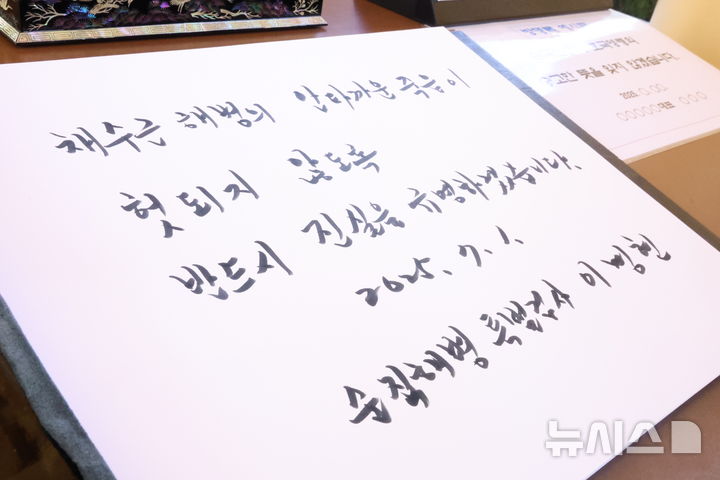 채수근 해병의 안타까운 죽음이
헛되지 않도록
반드시 진실을 규명하겠습니다.
2025. 7. 1.
순직해병 특별검사 이명현
고귀한 뜻을 잊지 않겠습니다.
2025. 0. 00.
OOOOO대표 OOO
뉴시스